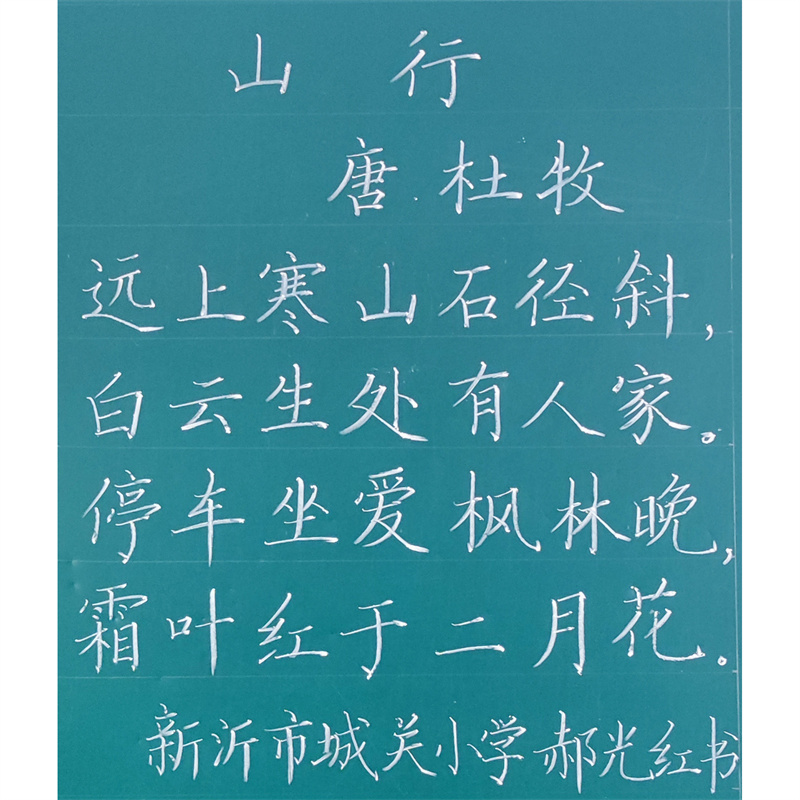 山行
唐.杜牧
远上寒山石径斜,
白云生处有人家。
停车坐爱枫林晚,
霜叶红于二月花。
新沂市城关小学郝光红书